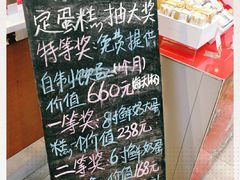 定蛋糕,抽大奖
特等奖:免费提供
自制饮品(1个月)
价值660元
一等奖:8寸鲜奶蛋
糕,价值238元
二等奖6寸鲜奶蛋
价值168元